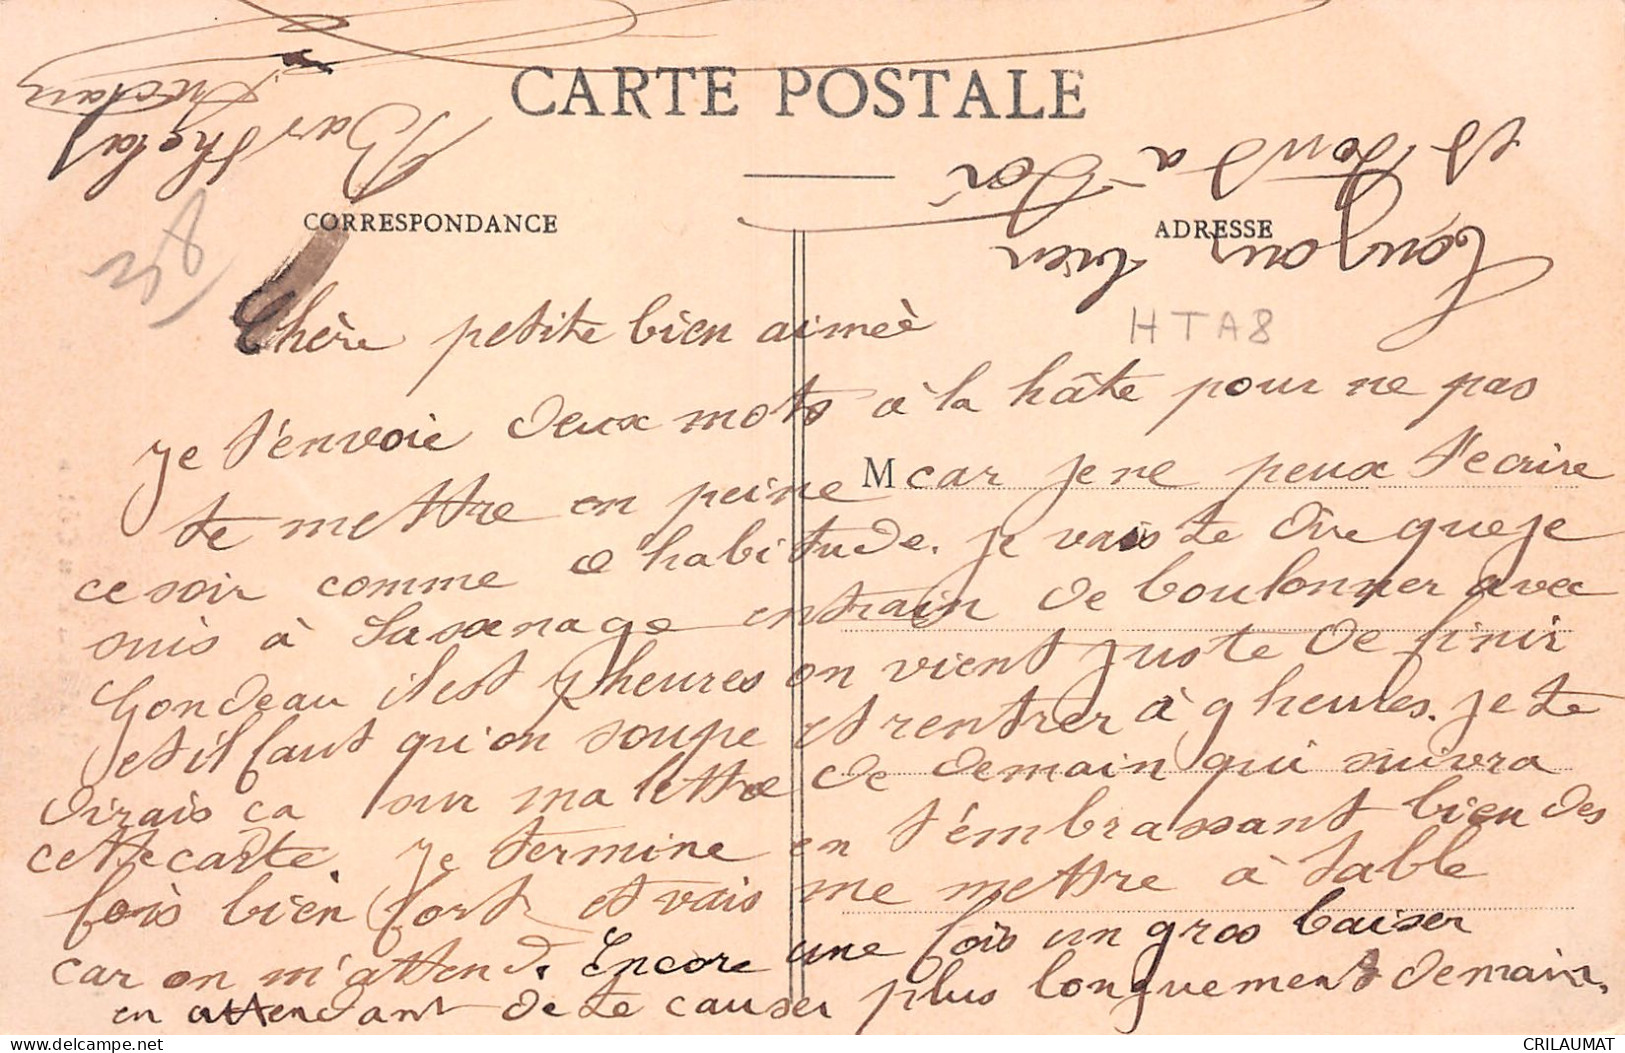 CARTE POSTALE
CORRESPONDANCE
ADRESSE
HTA8
Chère petite bien aimeè
Je t'envoie deux mots à la hâte pour ne pas
te mettre en peine M car je ne peux t'ecrire
ce soir comme d'habitude. je vais te dire que je
suis à Sassenage entrain de boulonner avec
Gondeau il est 7 heures on vient juste de finir
et il faut qu'on soupe et rentrer à 9 heures. je te
dirais ça sur ma lettre de demain qui suivra
cette carte. Je termine en t'embrassant bien des
fois bien fort et vais me mettre à table
car on m'attend. Encore une fois un gros baiser
en attendant de te causer plus longuement demain.
Toujours bien
et tout à toi
Barthelay
CRILAUMAT